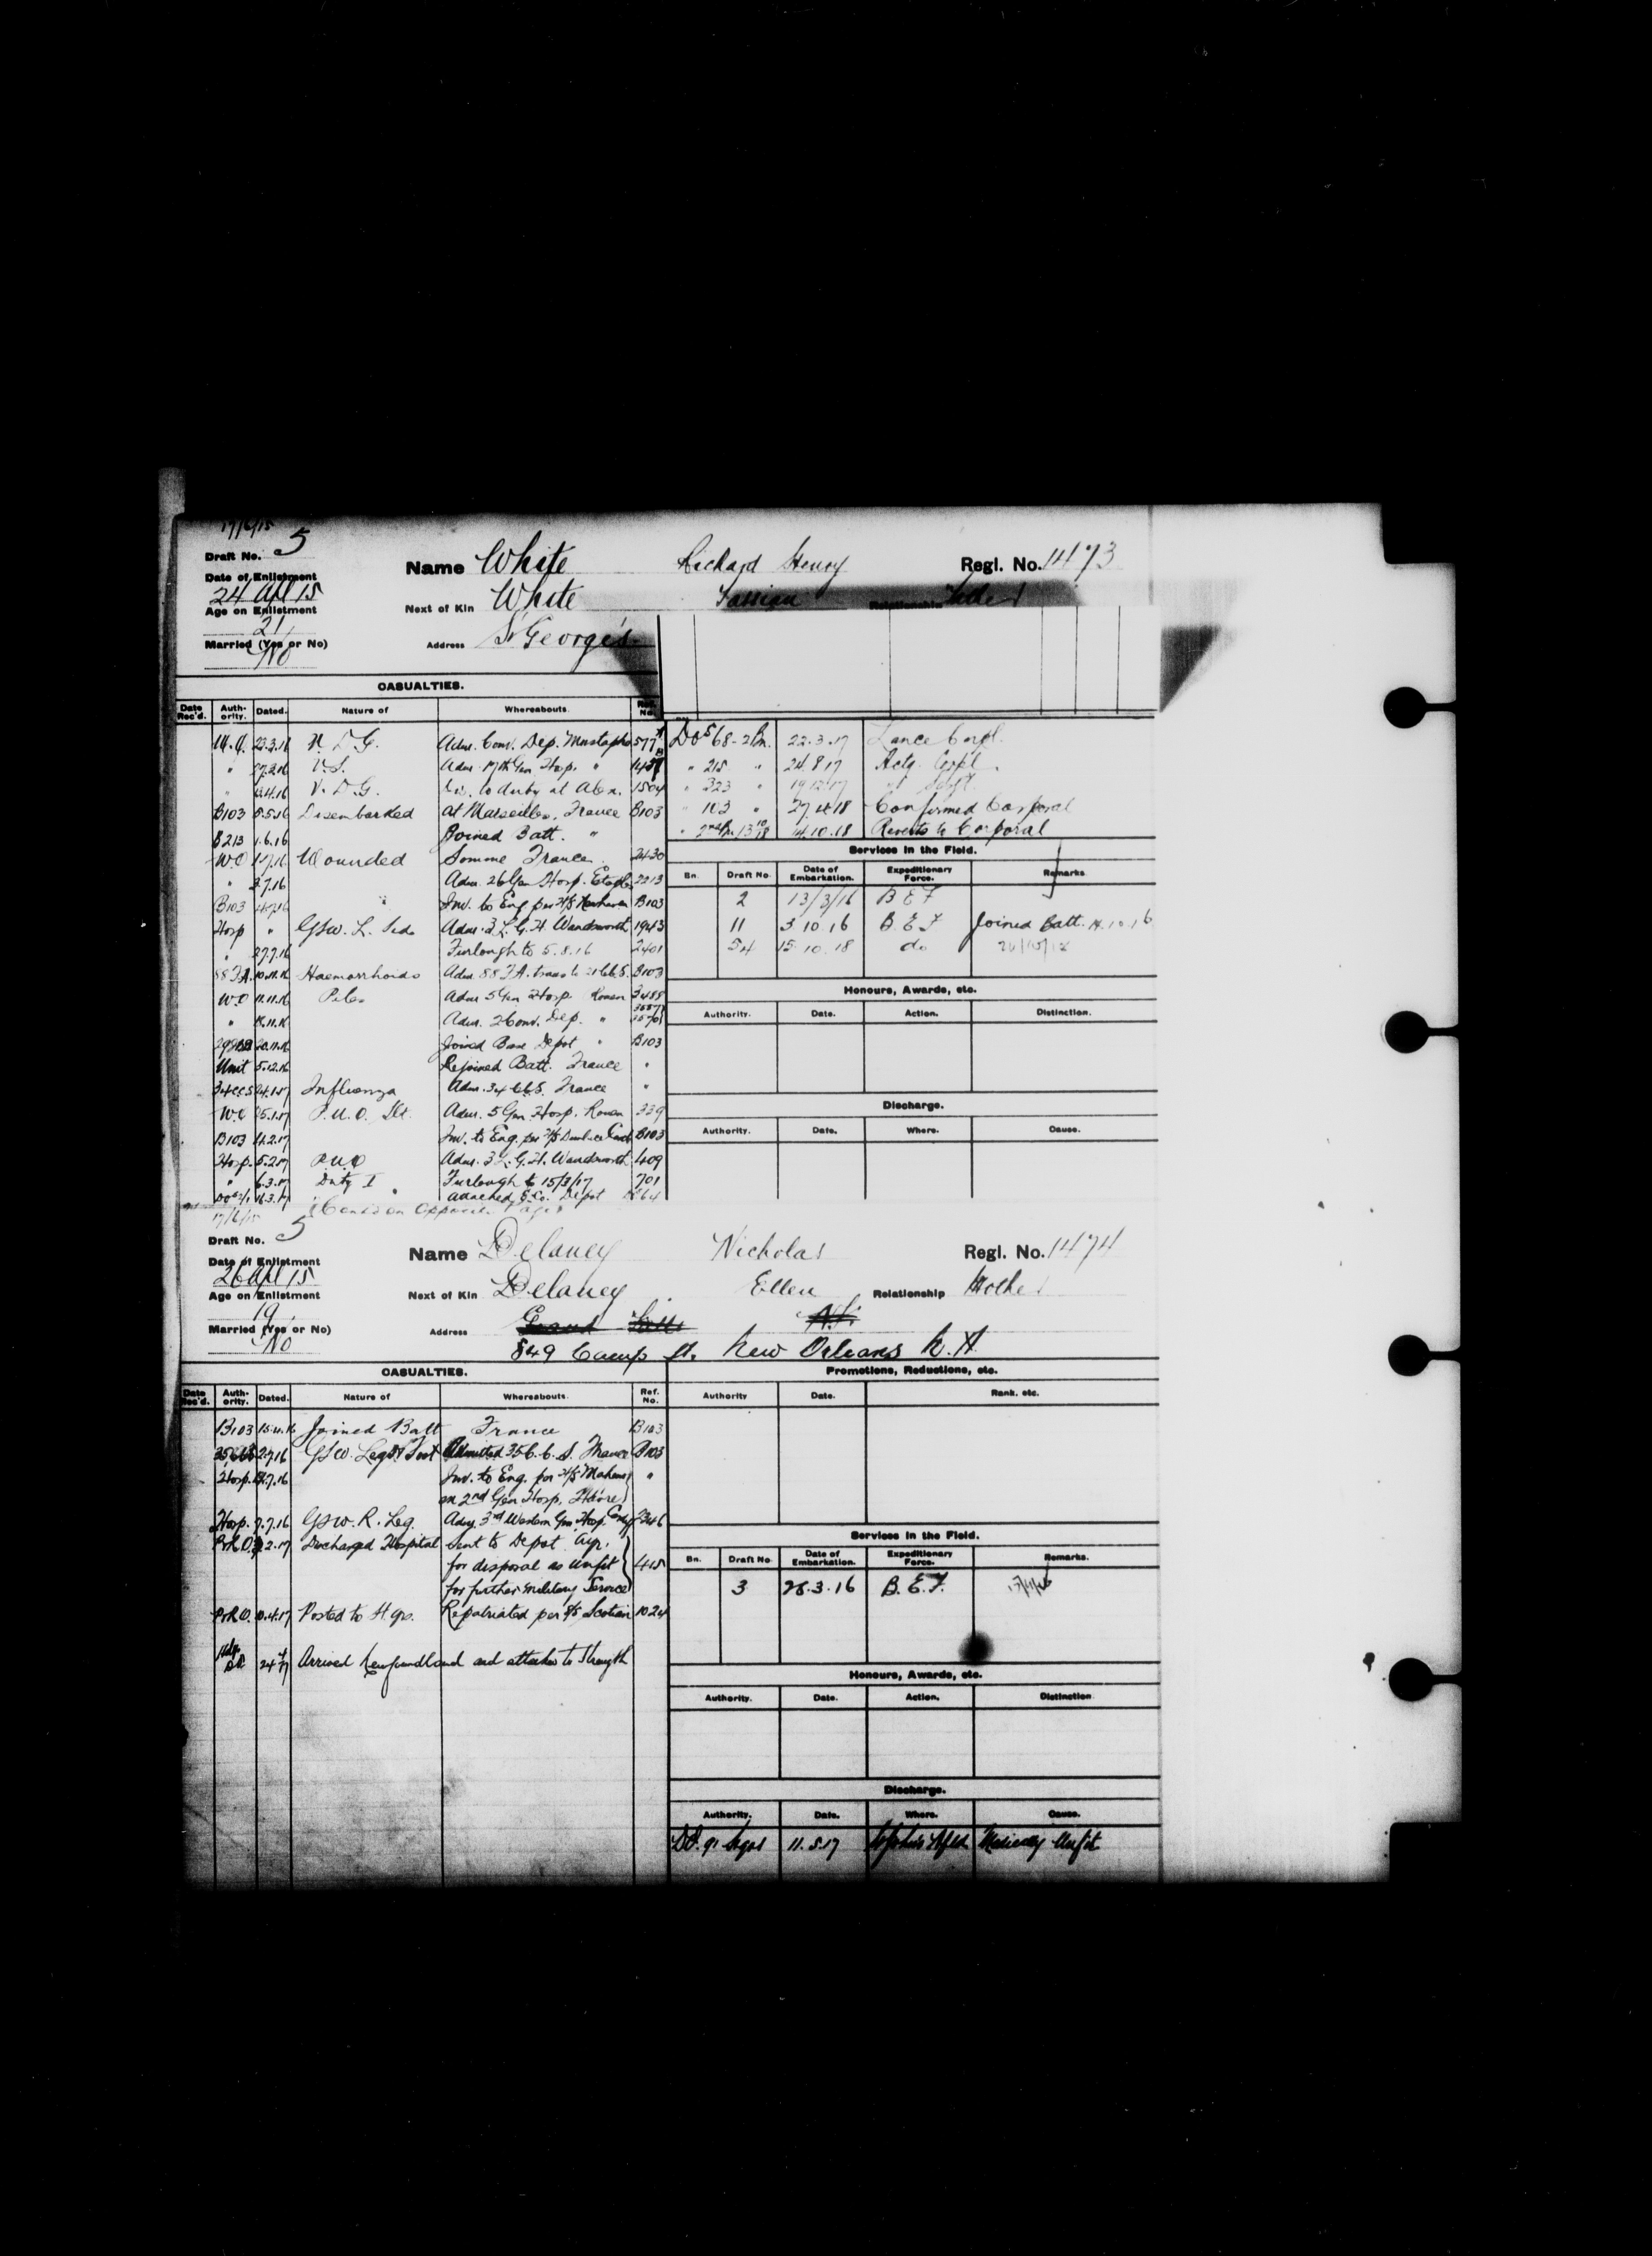 17/6/15
Draft No. 5
Name White Richard Henry Regl. No. 1473
Date of Enlistment
24 Apl 15
Next of Kin White Relationship
Age on Enlistment
21
Address St George's
Married (Yes or No)
No
CASUALTIES.
Date Rec'd. Auth-ority. Dated. Nature of Whereabouts. Ref. No.
22.3.16 V. D. G. Adm. Conv. Dep. Mustapha 577
" 27.3.16 V.S. Adm. 17th Gen. Hosp. "
V. D. G. 1504
B103 5.5.16 Disembarked at Marseilles, France B103
B213 1.6.16 Joined Batt. "
W.O Wounded Somme France 2430
" 3.7.16 Adm. 26 Gen Hosp. Etaples 2213
B103 Inv. to Eng per H/S B103
Hosp " GSW. L. Side Adm. 3 L. G. H. Wandsworth 1943
" 27.7.16 Furlough to 5.8.16 2401
88 F.A. 10.11.16 Haemorrhoids Adm 88 F.A. trans to B103
W.O 11.11.16 Piles Adm 5 Gen Hosp Rouen 3488
" Adm. 2 Conv. Dep. "
20.11.16 Joined Base Depot " B103
Unit 5.12.16 Rejoined Batt. France "
34 CCS 24.1.17 Influenza Adm. 34 C.C.S. France "
W.O 25.1.17 P.U.O. Adm. 5 Gen Hosp. Rouen 339
B103 4.2.17 Inv. to Eng. per H/S B103
Hosp. 5.2.17 P.U.O Adm. 3 L. G. H. Wandsworth 409
" 6.3.17 Duty I Furlough to 15/3/17 701
16.3.17 attached Depot
DOs 68-2 Bn. 22.3.17 Lance Corpl.
" 215 " 24.8.17 Actg. Corpl.
" 323 " 19.12.17 " Sergt.
" 103 " 27.4.18 Confirmed Corporal
14.10.18 Reverts to Corporal
Services in the Field.
Bn. Draft No. Date of Embarkation. Expeditionary Force. Remarks
2 13/3/16 B E F
11 3 10 16 B. E. F Joined Batt. 14.10.16
54 15 10.18 do
Honours, Awards, etc.
Authority. Date. Action. Distinction.
Discharge.
Authority. Date. Where. Cause.
17/6/15
Draft No. 5
Name Delaney Nicholas Regl. No. 1474
Date of Enlistment
26 Apl 15
Next of Kin Delaney Ellen Relationship Mother
Age on Enlistment
19
Address Grand Falls N.F.
Married (Yes or No)
No
849 Camp St. New Orleans
CASUALTIES.
Date Rec'd. Auth-ority. Dated. Nature of Whereabouts. Ref. No.
B103 15.4.16 Joined Batt France B103
2.7.16 GSW. Leg & Foot Admitted 35 C. C. S. France B103
Hosp. Inv. to Eng. per H/S "
on 2nd Gen Hosp, Havre
Hosp. 7.7.16 GSW. R. Leg. Adm 3rd Western Gen Hosp. 2346
P&R.O. Discharged Hospital Sent to Depot Ayr.
for disposal as unfit 415
for further military Service
P&R.O. 10.4.17 Posted to H. Qrs. Repatriated per S/S Scotian 1024
Arrived Newfoundland and attached to Strength
Promotions, Reductions, etc.
Authority Date. Rank. etc.
Services in the Field.
Bn. Draft No. Date of Embarkation. Expeditionary Force. Remarks.
3 28.3.16 B. E. F.
Honours, Awards, etc.
Authority. Date. Action. Distinction
Discharge.
Authority. Date. Where. Cause.
11.5.17 St John's Nfld. Medically Unfit